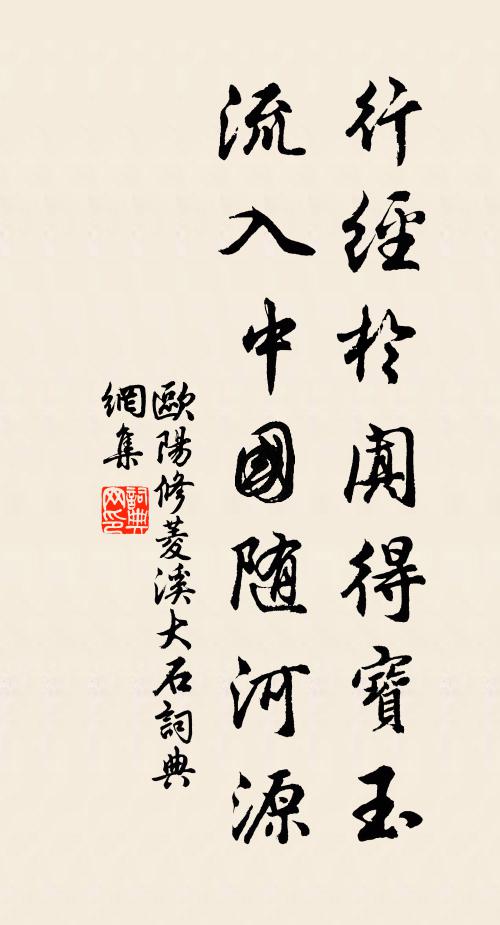 行經於闐得寶玉
流入中國随河源
歐陽修菱溪大石詞典
網集
詞典
网印